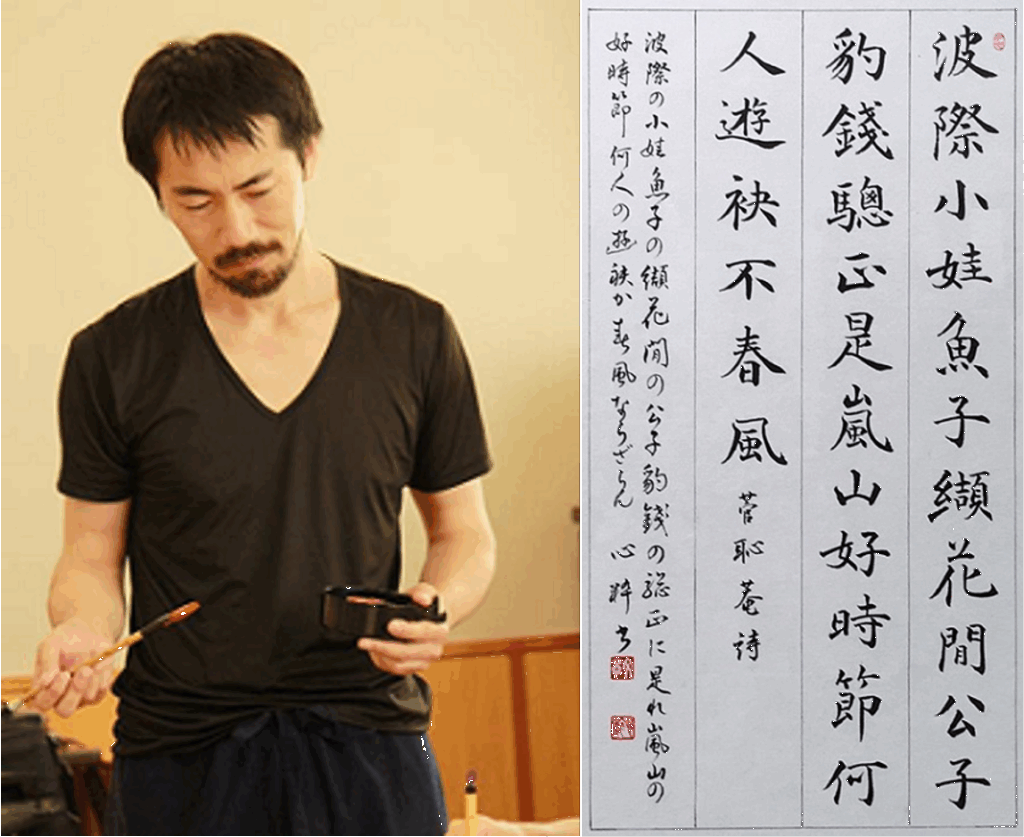 波際小娃魚子纈花間公子
豹錢驄正是嵐山好時節何
人遊袂不春風
菅恥菴詩
波際の小娃魚子の纈花間の公子豹錢の驄正に是れ嵐山の
好時節何人の遊袂か春風ならざらん 心粋書